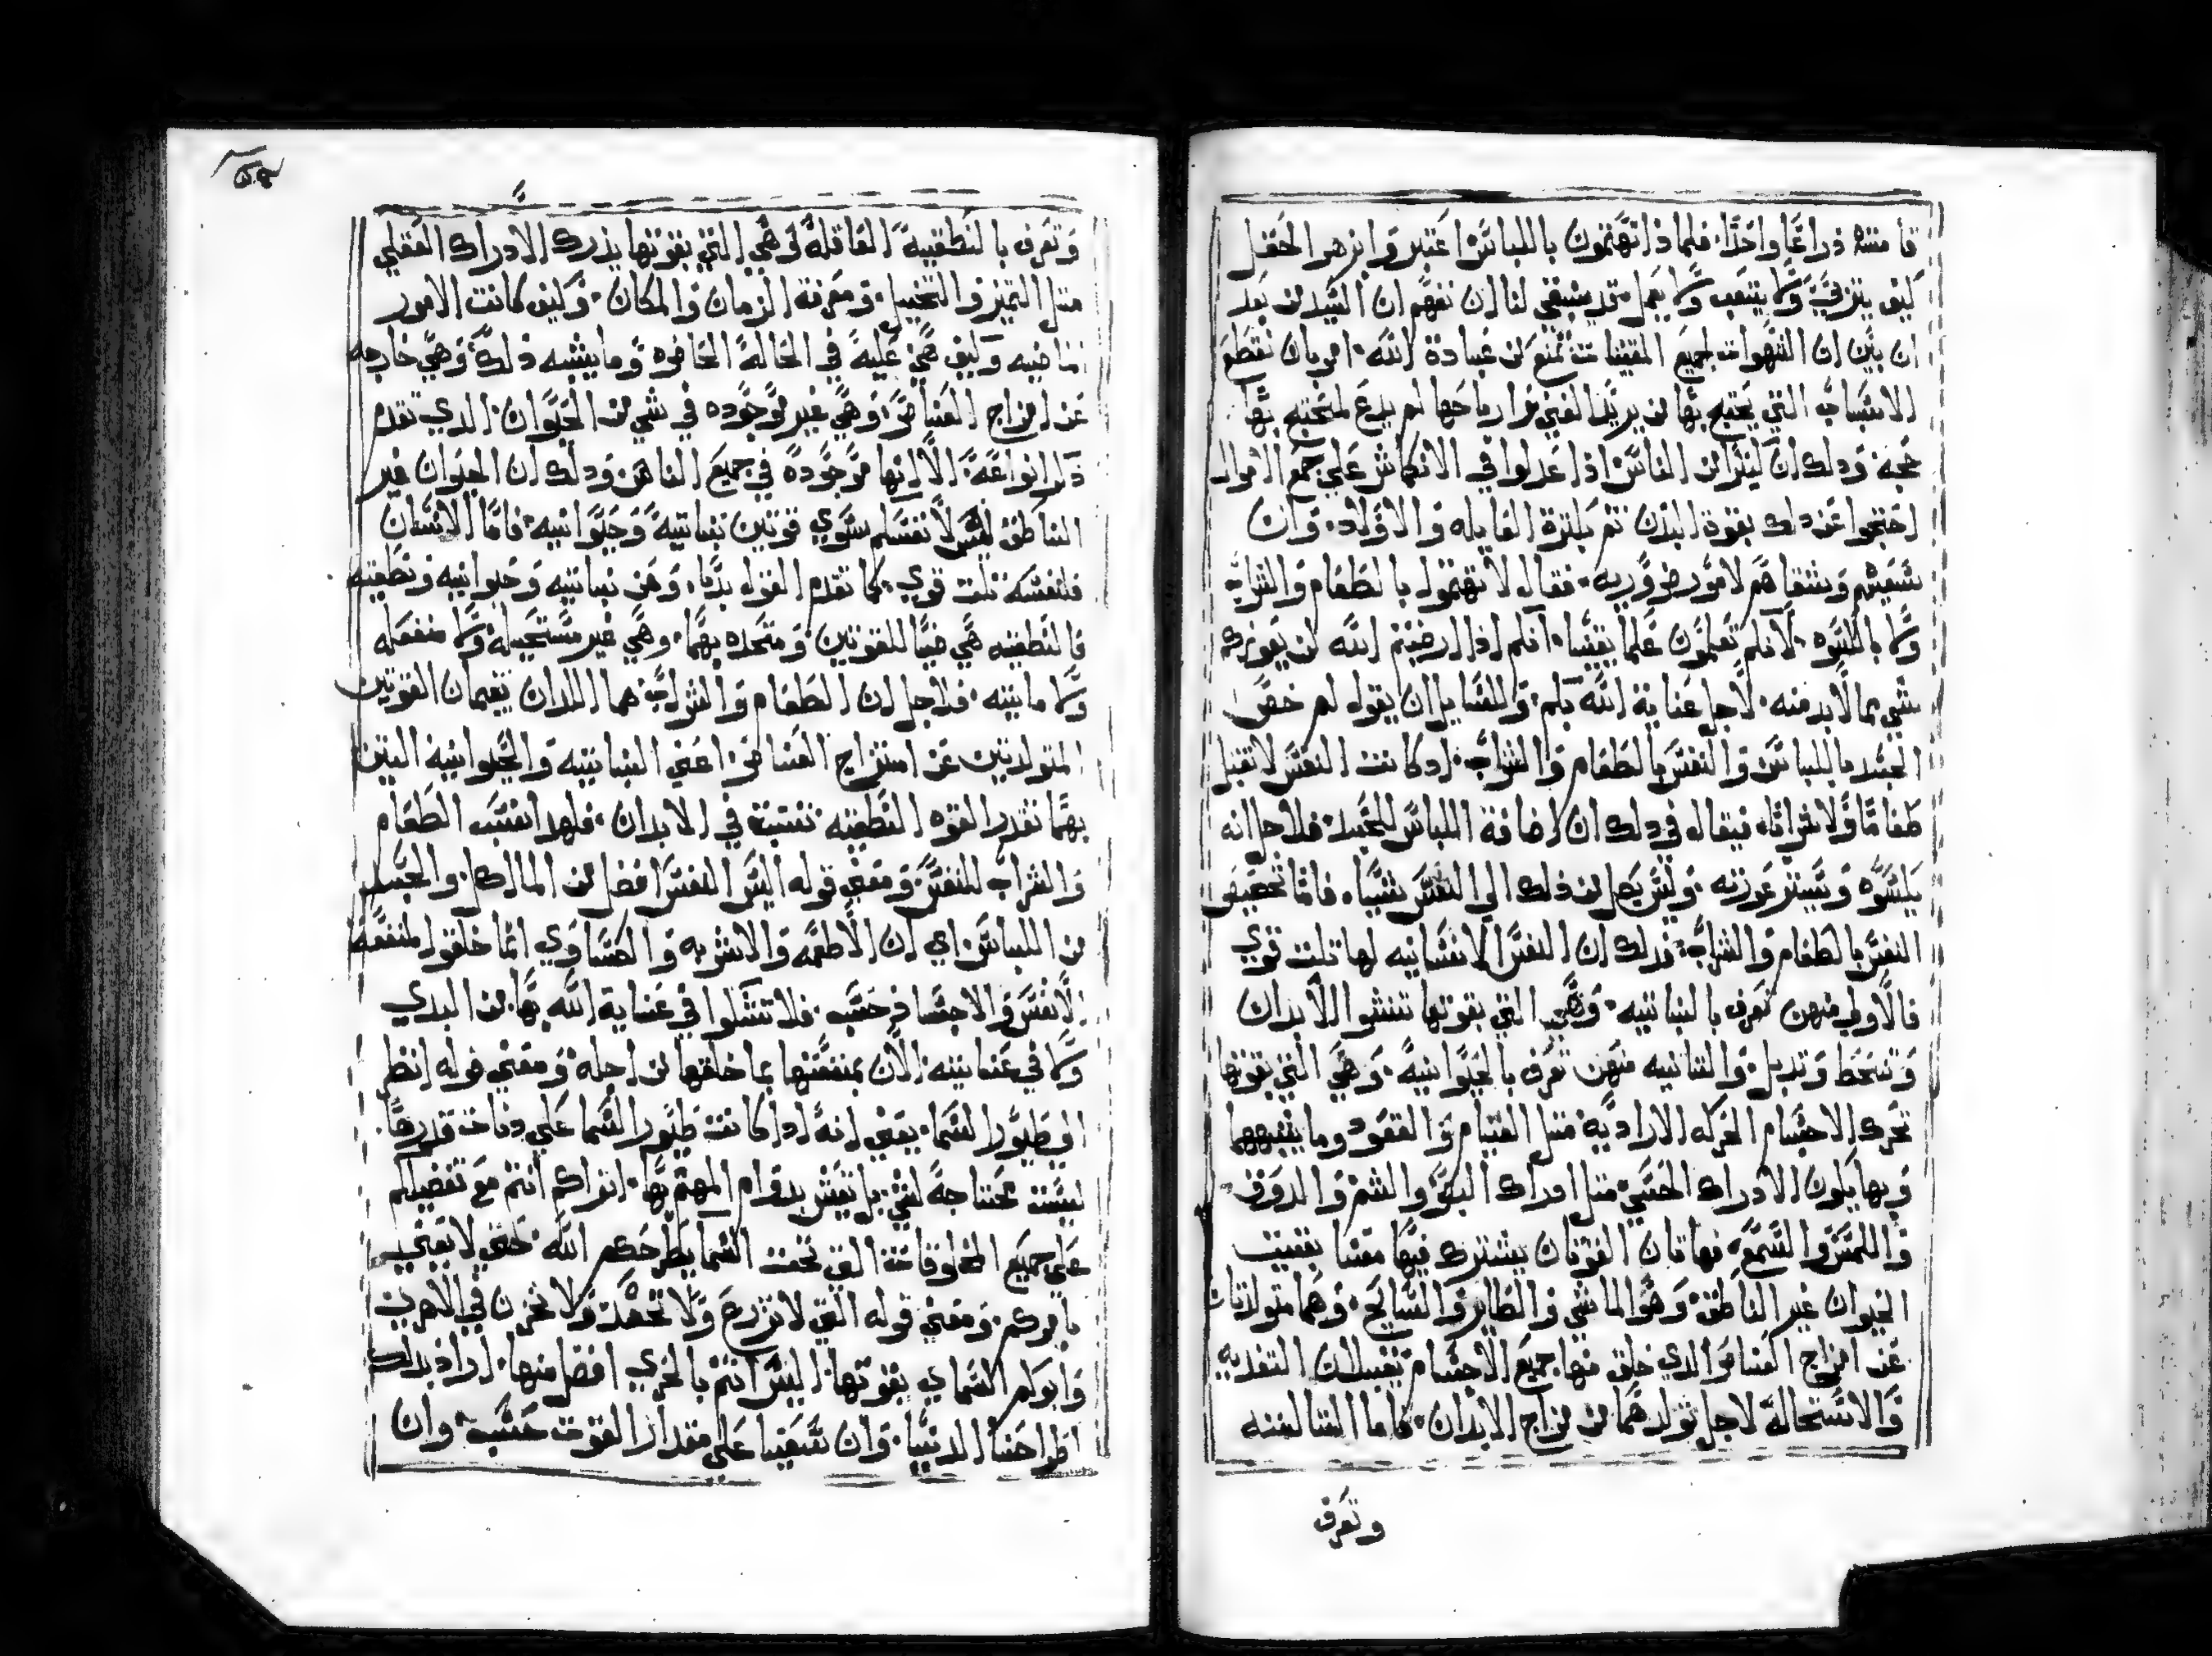 قامته ذراعًا واحدًا. فلماذا تهتمون باللباس اعتبروا بزهر الحقل
كيف يتربي ولا يتعب ولا يعمل قد ينبغي لنا ان نفهم ان السيد من بعد
ان بين ان الشهوات لجميع المقتنيات تمنع من عبادة الله. امر بان نقطع
الاسباب التي يحتج بها من يريد الغني من ارباحها لم يدع لمحتج بها
حجه. وذلك ان كثير من الناس اذا عدلوا في الانكماش علي جمع الاموال
احتجوا عن ذلك بقوة البدن ثم بكثرة العايله والاولاد. وان
سعيهم وشقاهم لامور ضروريه. فقال لا تهتموا بالطعام والشراب
ولا بالكسوه. لانكم تعلمون علما يقينا. انكم اذا ارضيتم الله لن يعوزكم
شي مما لابد منه. لاجل عناية الله بكم. وللسايل ان يقول لم خص
الجسد باللباس والنفس بالطعام والشراب. اد كانت النفس لا تقبل
طعامًا ولا شرابًا. فيقال في دلك ان اضافة اللباس للجسد. فلاجل انه
يكسوه ويستر عورته. وليس يصل من ذلك الي النفس شيا. فاما تخصيص
النفس بالطعام والشراب. فدلك ان النفس الانسانيه لها تلت قوي
فالاولي منهن تعرف بالنباتيه. وهي التي بقوتها تنشوا الابدان
وتنحط وتدبل. والتانيه منهن تعرف بالحيوانيه. وهي التي بقوتها
تحرك الاجسام الحركه الاراديه متل القيام والقعود وما يشبههما
وبها يكون الادراك الحسي. متل ادراك البصر والشم والدوق
واللمس والسمع. فهاتان القوتان يشترك فيها معنا بقيت
الحيوان غير الناطق. وهو الماشي والطاير والسابح. وهما متولدتان
عن امزاج العناصر الدي خلق منها جميع الاجسام تقبلان التغديه
والاستحالة لاجل تولدهما من مزاج الابدان. فاما التالته
وتعرف
وتعرف بالنطقيه العاقله وهي التي بقوتها يدرك الادراك العقلي
متل التميز والتخيل. ومعرفة الزمان والمكان. وكيف كانت الامور
الماضيه وكيف هي عليه في الحاله الحاضره وما يشبه ذلك. وهي خارجه
عن امزاج العناصر. وهي غير موجوده في شي من الحيوان. الدي تقدم
ذكر انواعه. الا انها موجوده في جميع الناس. ودلك ان الحيوان غير
الناطق ليس لانفسهم سوي قوتين نباتيه وحيوانيه. فاما الانسان
فلنفسه تلت قوي. كما تقدم القول بديا. وهن نباتيه وحيوانيه ونطقيه
فالنطقيه هي ضيا للقوتين. ومتحده بهما. وهي غير مستحيله ولا منفصله
ولا مايته. فلاجل ان الطعام والشراب هما اللدان يقيمان القوتين
المتولدتين عن امتزاج العناصر اعني النباتيه والحيوانيه التين
بهما تقدر القوه النطقيه. تتبت في الابدان. فلهدا نسب الطعام
والشراب للنفس. ومعني قوله اليس النفس افضل من الماكل. والجسد
من اللباس. اي ان الاطعمه والاشربه والكساوي انما خلقوا لمنفعة
الانفس والاجساد حسب. فلا تشكوا في عناية الله بها. من البدي
ولا في عنايته. الان بمنفعتها بما خلقها من اجله. ومعني قوله انظر
الي طيور السما. يعني انه ادا كانت طيور السما علي دنات قدرها.
ليست محتاجه لشي بل تعيش بدوام المهتم بها. اتراكم انتم مع تفضيلكم
علي جميع المخلوقات التي تحت السما يطرحكم الله. حتي لا يعتني
باموركم. ومعني قوله التي لا تزرع ولا تحصد ولا تخزن في الاهري
وابوكم السماي يقوتها. اليس انتم بالحري افضل منها. اراد بدلك
اطراحنا الدنيا. وان تسعينا علي مقدار القوت حسب. وان